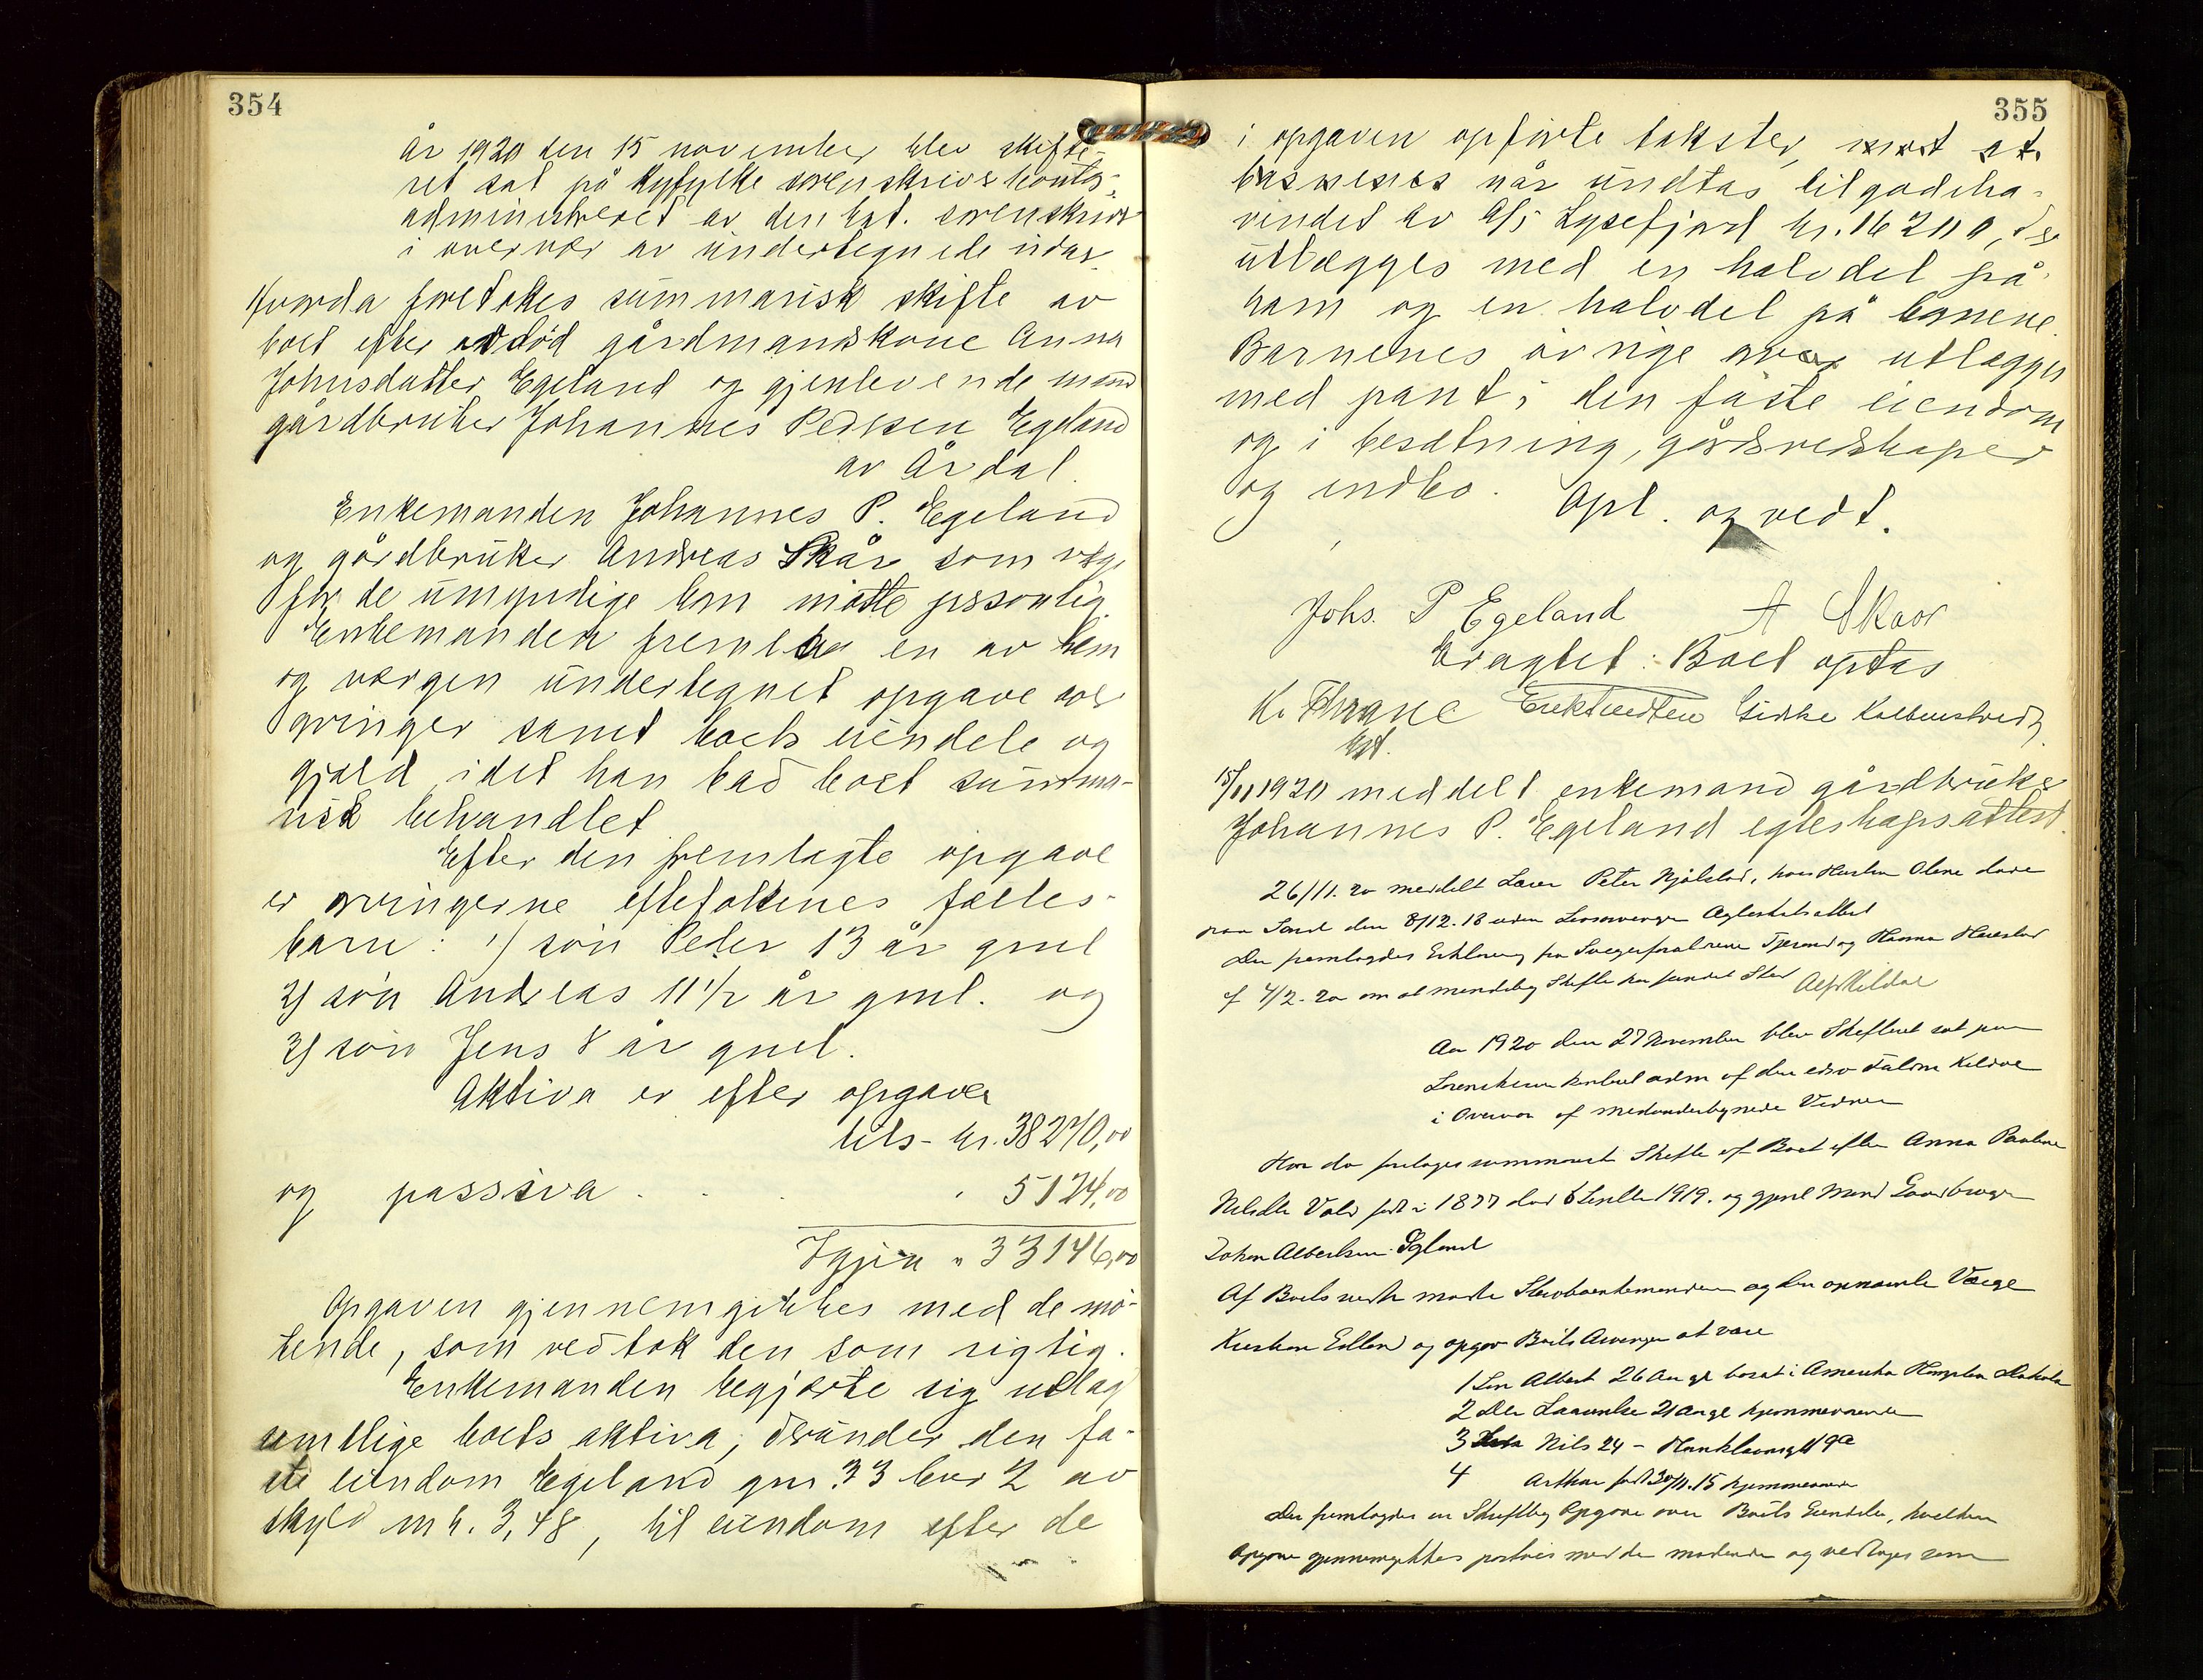 354
år 1920 den 15 november blev skifte-
ret sat på Ryfylke sorenskriverkontor,
administreret av den kst. sorenskriver
i overvær av undertegnede vidner
Hvorda foretokes summarisk skifte av
boet efter avdød gårdmandskone Anna
Johnsdatter Egeland og gjenlevende mand
gårdbruker Johannes Pedersen Egeland
av Årdal.
Enkemanden Johannes P. Egeland
og gårdbruker Andreas Skår som verge
for de umyndige barn møtte personlig.
Enkemanden fremla en av ham
og vergen undertegnet opgave over
arvinger samt boets eiendele og
gjæld idet han bad boet summa-
risk behandlet
Efter den fremlagte opgave
er arvingerne ektefolkenes fælles-
barn: 1) søn Peder 13 år gml
2) søn Andreas 11 1/2 år gml. og
3) søn Jens 8 år gml.
Aktiva er efter opgaven
tils. kr. 38270,00
og passiva . . . . 5124,00
Igjen " 33146,00
Opgaven gjennemgikkes med de mø-
tende, som vedtok den som rigtig.
Enkemanden begjærte sig utlagt
samtlige boets aktiva, derunder den fa-
ste eiendom Egeland gnr. 33 bnr 2 av
skyld mk. 3,48, til eiendom efter de
355
i opgaven opførte takster, mot at
barnenes når undtas tilgodeha-
vendet av A/S Lysefjord kr. 16200, der
utlægges med en halvdel på
ham og en halvdel på barnene.
Barnenes øvrige arv utlægges
med pant i den faste eiendom
og i besætning, gårdsredskaper
og indbo.
Opl. og vedt.
Johs. P Egeland A Skaar
Eragtet: Boet optas
K. Thrane
kst.
15/11 1920 meddelt enkemand gårdbruker
Johannes P. Egeland egteskapsattest.
26/11. 20 meddelt Peter hvis Hustru Olene døde
paa Sand den 8/12. 18 uden Livsarvinger Ægteskabsattest
Der fremlagdes Erklæring fra Svigerforældrene og Hanna
af 4/2. 20 om at mindelig Skifte har fundet Sted
Aar 1920 den 27 November blev Skifteret sat paa
Sorenskriver kontoret adm af den
i Overvær af medundertegnede Vidner
Hvor da foretages summarisk Skifte af Boet efter Anna Pauline
Nilsdtr født i 1877 død 6 1919. og gjenl Mand Gaardbruger
Johan Albertsen
Af Boets møtte Stervboenkemanden og den opnævnte Værge
og opgav Boets Arvinger at være
1 Søn Albert 26 Aar gl bosat i Amerika
2 Dtr 21 Aar gl hjemmeværende
3 Nils 24 -
4 Arthur født 30/11. 15 hjemmeværende
Der fremlagdes en Skriftlig Opgave over Boets Eiendele, hvilken
Opgave gjennemgikkes postvis med de mødende og vedtoges som